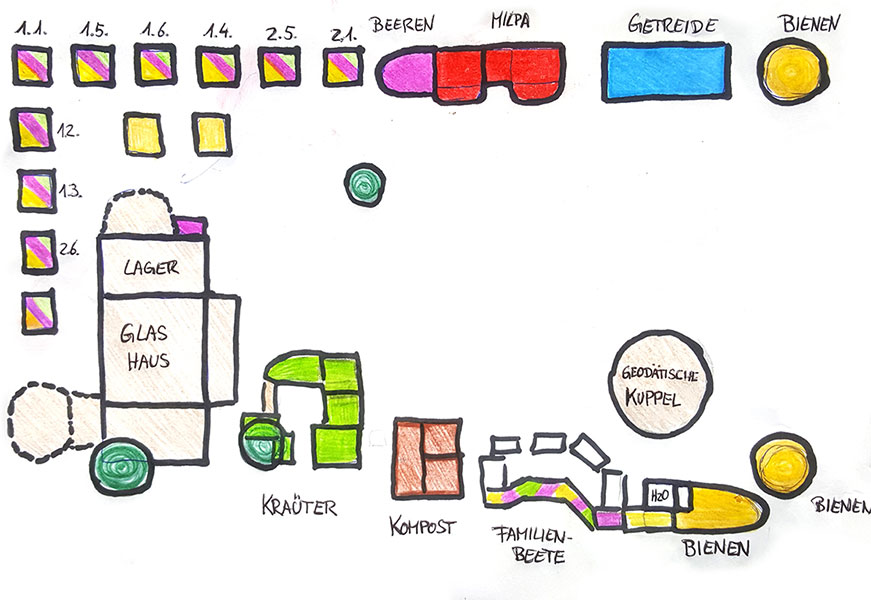 1.1.
1.5.
1.6.
1.4.
2.5.
2.1.
BEEREN
MILPA
GETREIDE
BIENEN
1.2.
1.3.
2.6.
LAGER
GLAS
HAUS
GEODÄTISCHE
KUPPEL
H2O
KRAÜTER
KOMPOST
FAMILIEN-
BEETE
BIENEN
BIENEN